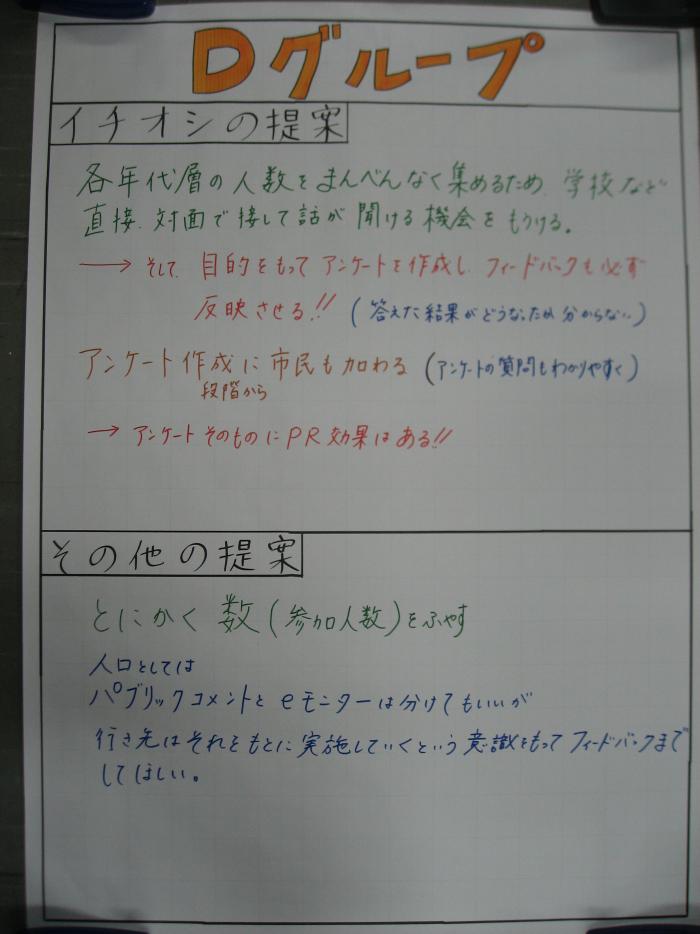 Dグループ
イチオシの提案
各年代層の人数をまんべんなく集めるため、学校など
直接、対面で接して話が聞ける機会をもうける。
→ そして、目的をもってアンケートを作成し、フィードバックも必ず
反映させる!! (答えた結果がどうなったか分からない)
アンケート作成に市民も加わる (アンケートの質問もわかりやすく)
段階から
→ アンケートそのものにPR効果はある!!
その他の提案
とにかく数(参加人数)をふやす
人口としては
パブリックコメントとeモニターは分けてもいいが
行き先はそれをもとに実施していくという意識をもってフィードバックまで
してほしい。